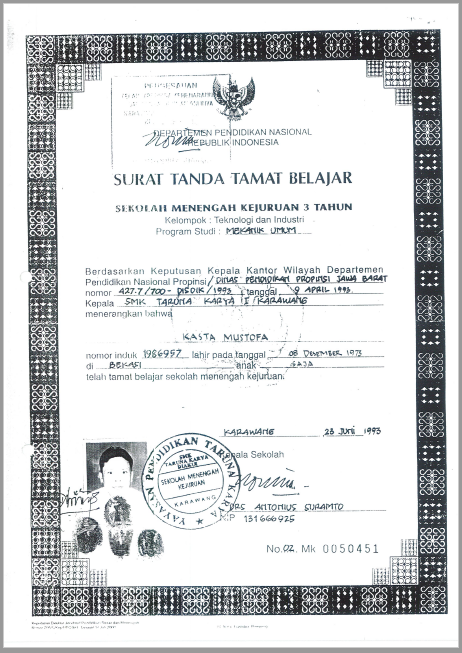 PENGESAHAN
DEPARTEMEN PENDIDIKAN NASIONAL
REPUBLIK INDONESIA
SURAT TANDA TAMAT BELAJAR
SEKOLAH MENENGAH KEJURUAN 3 TAHUN
Kelompok : Teknologi dan Industri
Program Studi : MEKANIK UMUM
Berdasarkan Keputusan Kepala Kantor Wilayah Departemen
Pendidikan Nasional Propinsi / DINAS PENDIDIKAN PROPINSI JAWA BARAT
nomor 427.7/700 - DISDIK / 1993 tanggal 9 APRIL 1993
Kepala SMK TARUNA KARYA I KARAWANG
menerangkan bahwa
KASTA MUSTOFA
nomor induk 1986957 lahir pada tanggal 08 DESEMBER 1973
di BEKASI anak SAJA
telah tamat belajar sekolah menengah kejuruan.
KARAWANG 23 JUNI 1993
Kepala Sekolah
YAYASAN PENDIDIKAN TARUNA KARYA
SMK
TARUNA KARYA
SEKOLAH MENENGAH
KEJURUAN
KARAWANG
DRS ANTONIUS SURAMTO
NIP 131666925
No. 02. Mk 0050451